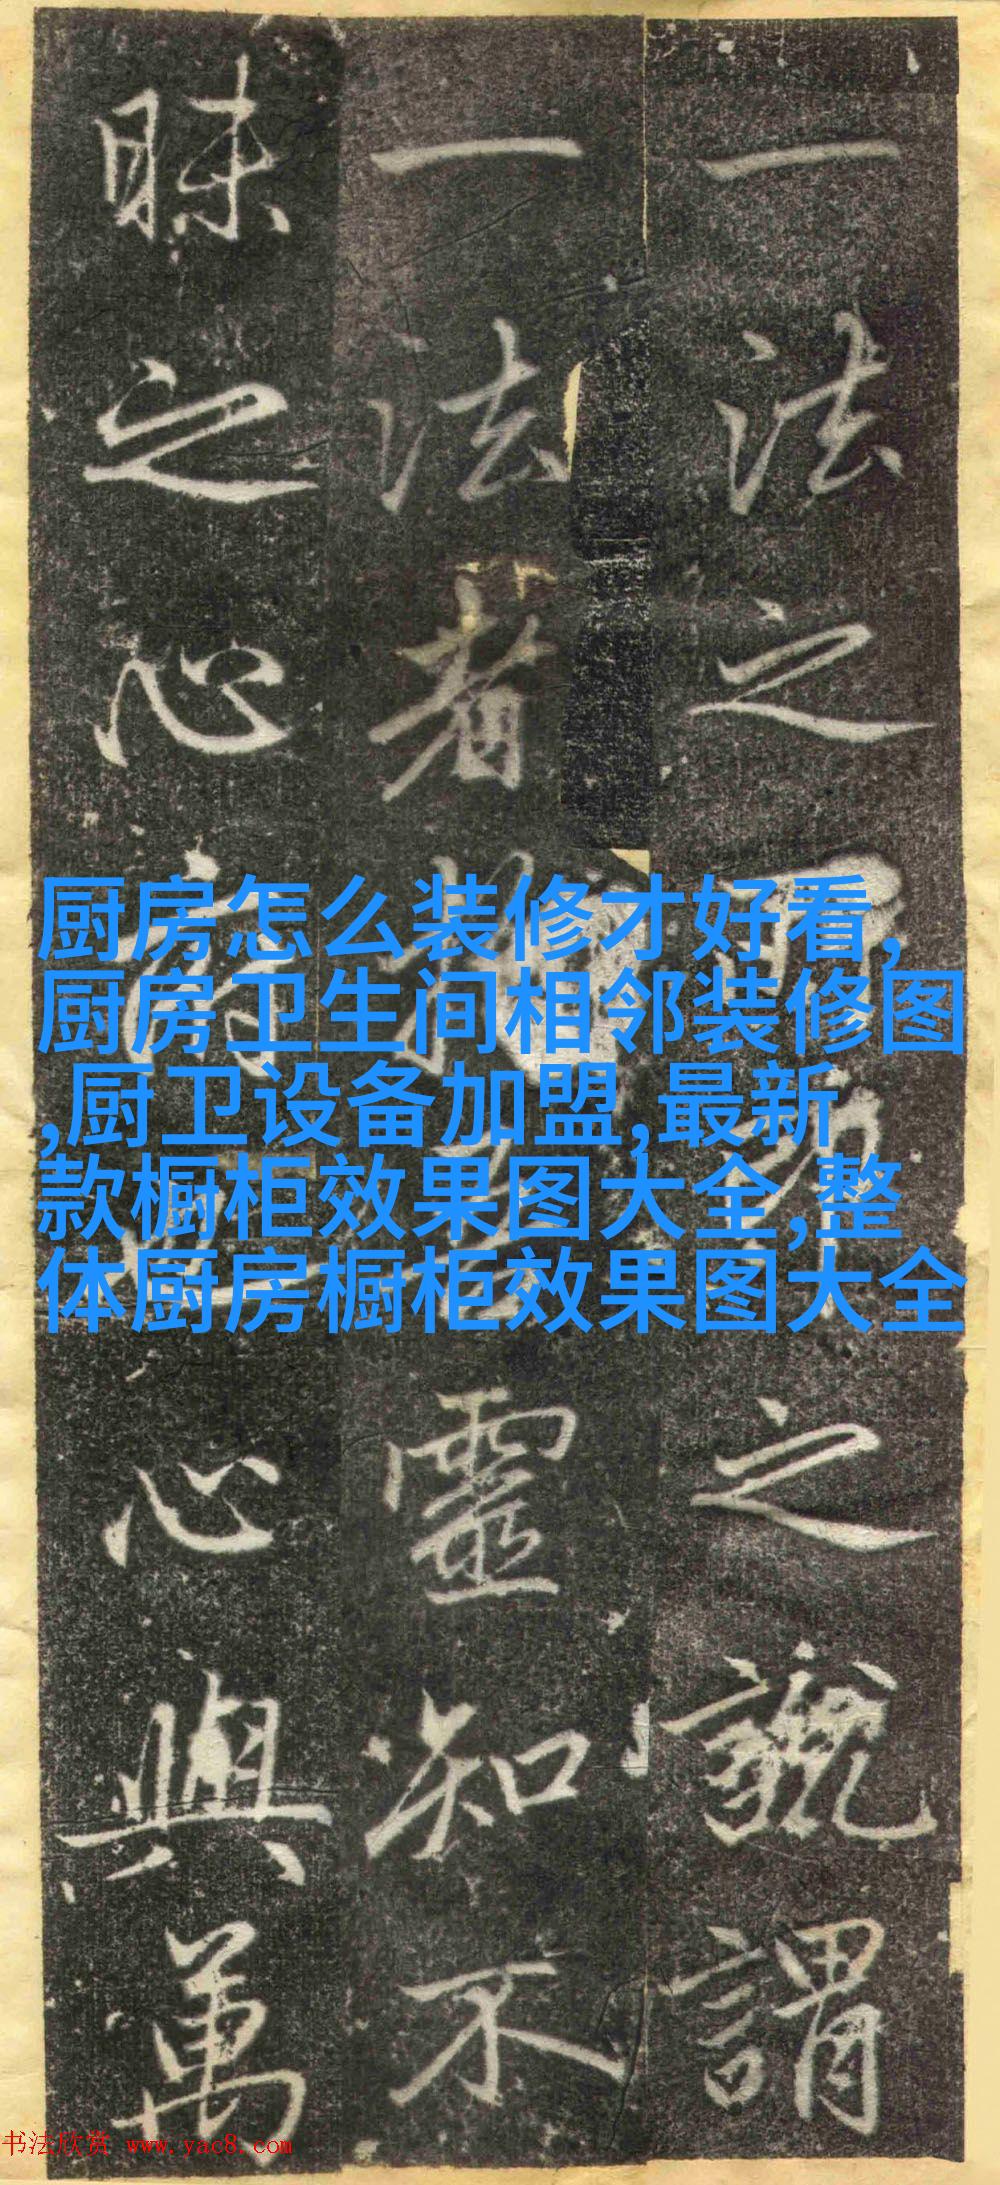 一法之
之說謂
一法者
靈知不
昧之心
心與萬
厨房怎么装修才好看,
厨房卫生间相邻装修图
,厨卫设备加盟,最新
款橱柜效果图大全,整
体厨房橱柜效果图大全
书法欣赏 www.yac8.com